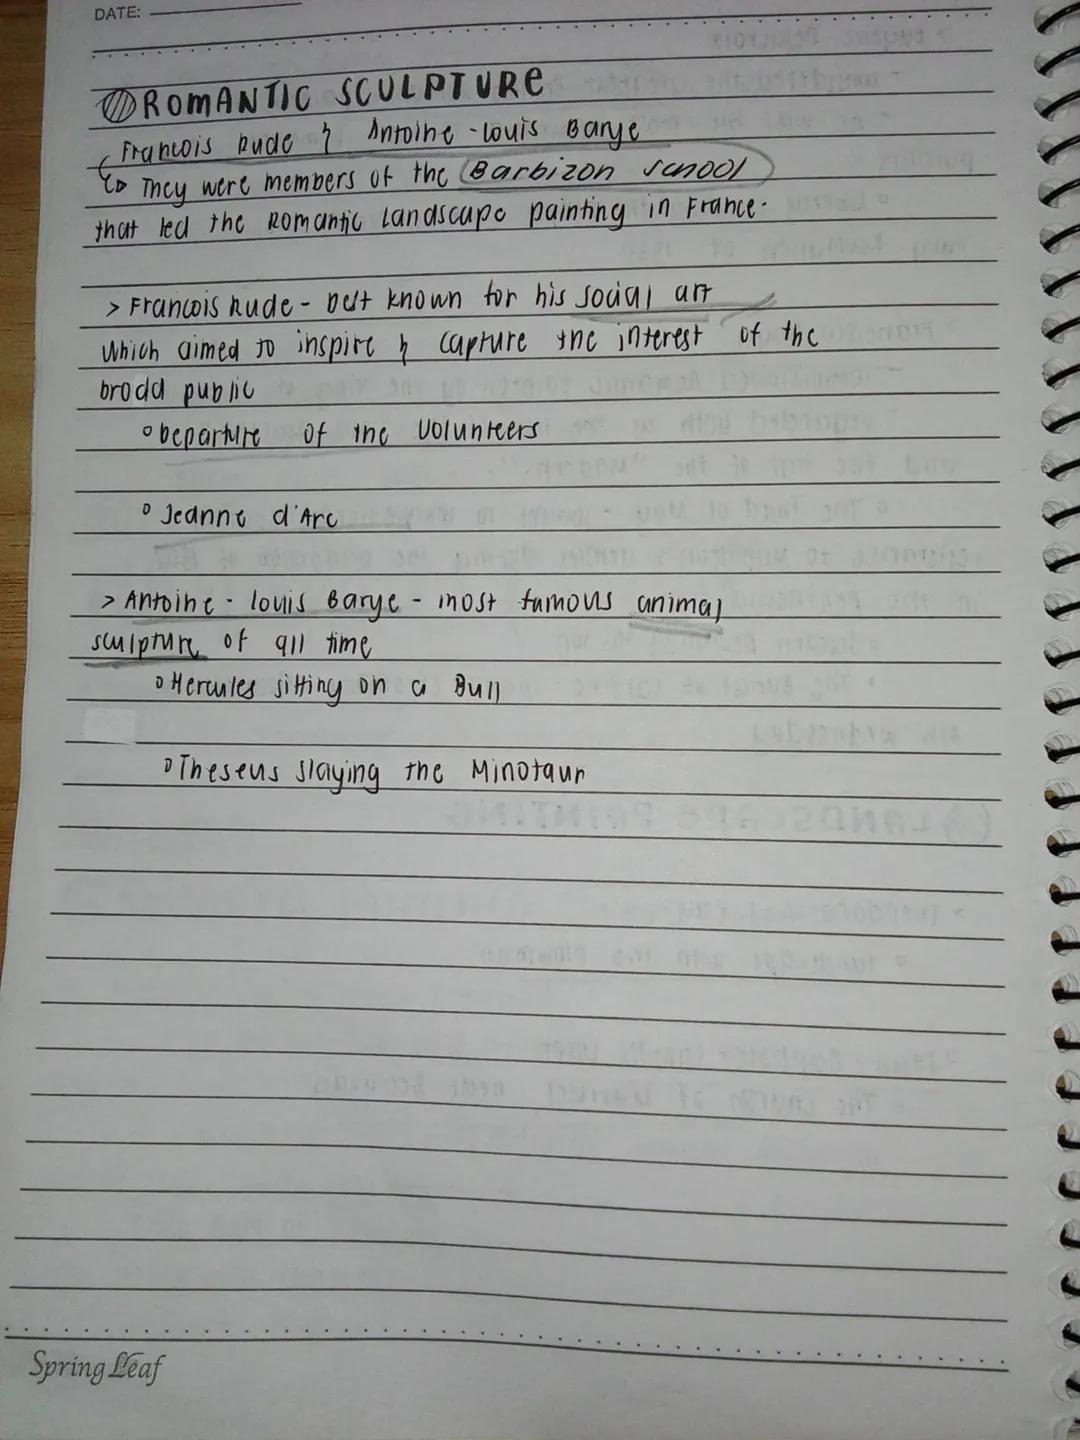 DATE:
ROMANTIC SCULPTURE
Francois Rude & Antoine-Louis Barye
They were members of the Barbizon School
that led the Romantic Landscape painting in France.
> Francois Rude - best known for his social art
which aimed to inspire & capture the interest of the
brodd public
Departure of the Volunteers
Jeanne d'Arc
> Antoine-Louis Barye - most famous animal
sculpture of all time
Hercules sitting on a Bull
Theseus slaying the Minotaur
Spring Leaf